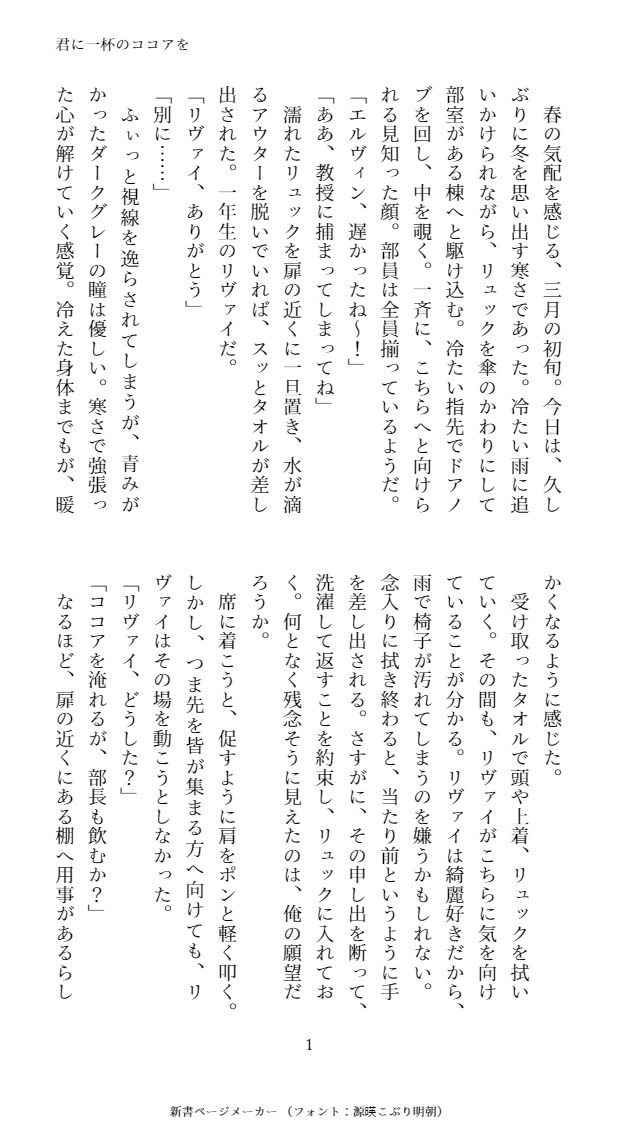 君に一杯のココアを
　春の気配を感じる、三月の初旬。今日は、久し
ぶりに冬を思い出す寒さであった。冷たい雨に追
いかけられながら、リュックを傘のかわりにして
部室がある棟へと駆け込む。冷たい指先でドアノ
ブを回し、中を覗く。一斉に、こちらへと向けら
れる見知った顔。部員は全員揃っているようだ。
「エルヴィン、遅かったね～！」
「ああ、教授に捕まってしまってね」
　濡れたリュックを扉の近くに一旦置き、水が滴
るアウターを脱いでいれば、スッとタオルが差し
出された。一年生のリヴァイだ。
「リヴァイ、ありがとう」
「別に……」
　ふぃっと視線を逸らされてしまうが、青みが
かったダークグレーの瞳は優しい。寒さで強張っ
た心が解けていく感覚。冷えた身体までもが、暖
かくなるように感じた。
　受け取ったタオルで頭や上着、リュックを拭い
ていく。その間も、リヴァイがこちらに気を向け
ていることが分かる。リヴァイは綺麗好きだから、
雨で椅子が汚れてしまうのを嫌うかもしれない。
念入りに拭き終わると、当たり前というように手
を差し出される。さすがに、その申し出を断って、
洗濯して返すことを約束し、リュックに入れてお
く。何となく残念そうに見えたのは、俺の願望だ
ろうか。
　席に着こうと、促すように肩をポンと軽く叩く。
しかし、つま先を皆が集まる方へ向けても、リ
ヴァイはその場を動こうとしなかった。
「リヴァイ、どうした？」
「ココアを淹れるが、部長も飲むか？」
　なるほど、扉の近くにある棚へ用事があるらし
1
新書ページメーカー（フォント：源暎こぶり明朝）